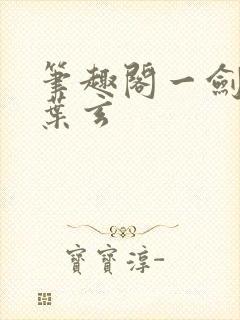 筆趣閣一劍
葉玄
寶寶淳-